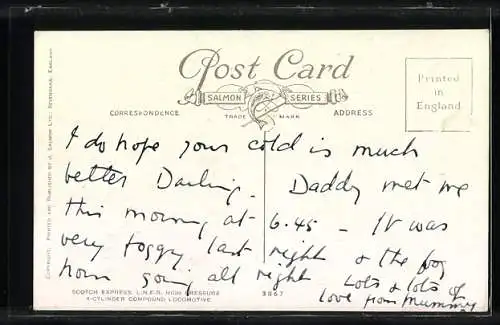 Post Card
SALMON SERIES
TRADE MARK
CORRESPONDENCE
ADDRESS
Printed
in
England
I do hope your cold is much
better Darling. Daddy met me
this morning at 6.45 - It was
very foggy last night & the fog
horn going all night Lots & lots of
love from Mummy
SCOTCH EXPRESS, L.N.E.R. HIGH PRESSURE
4-CYLINDER COMPOUND LOCOMOTIVE.
3867
COPYRIGHT. PRINTED AND PUBLISHED BY J. SALMON LTD., SEVENOAKS, ENGLAND